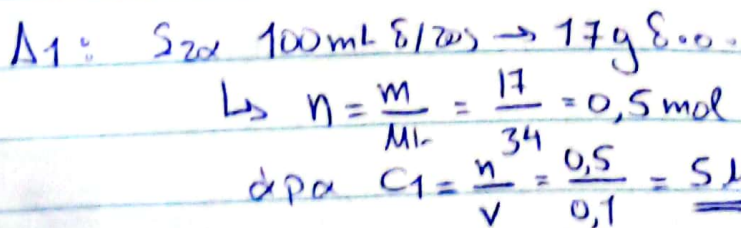 Δ1: Σ2α 100mL δ/τος → 17g δ.ο.
↳ n = m/Mr = 17/34 = 0,5 mol
άρα C1 = n/V = 0,5/0,1 = 5